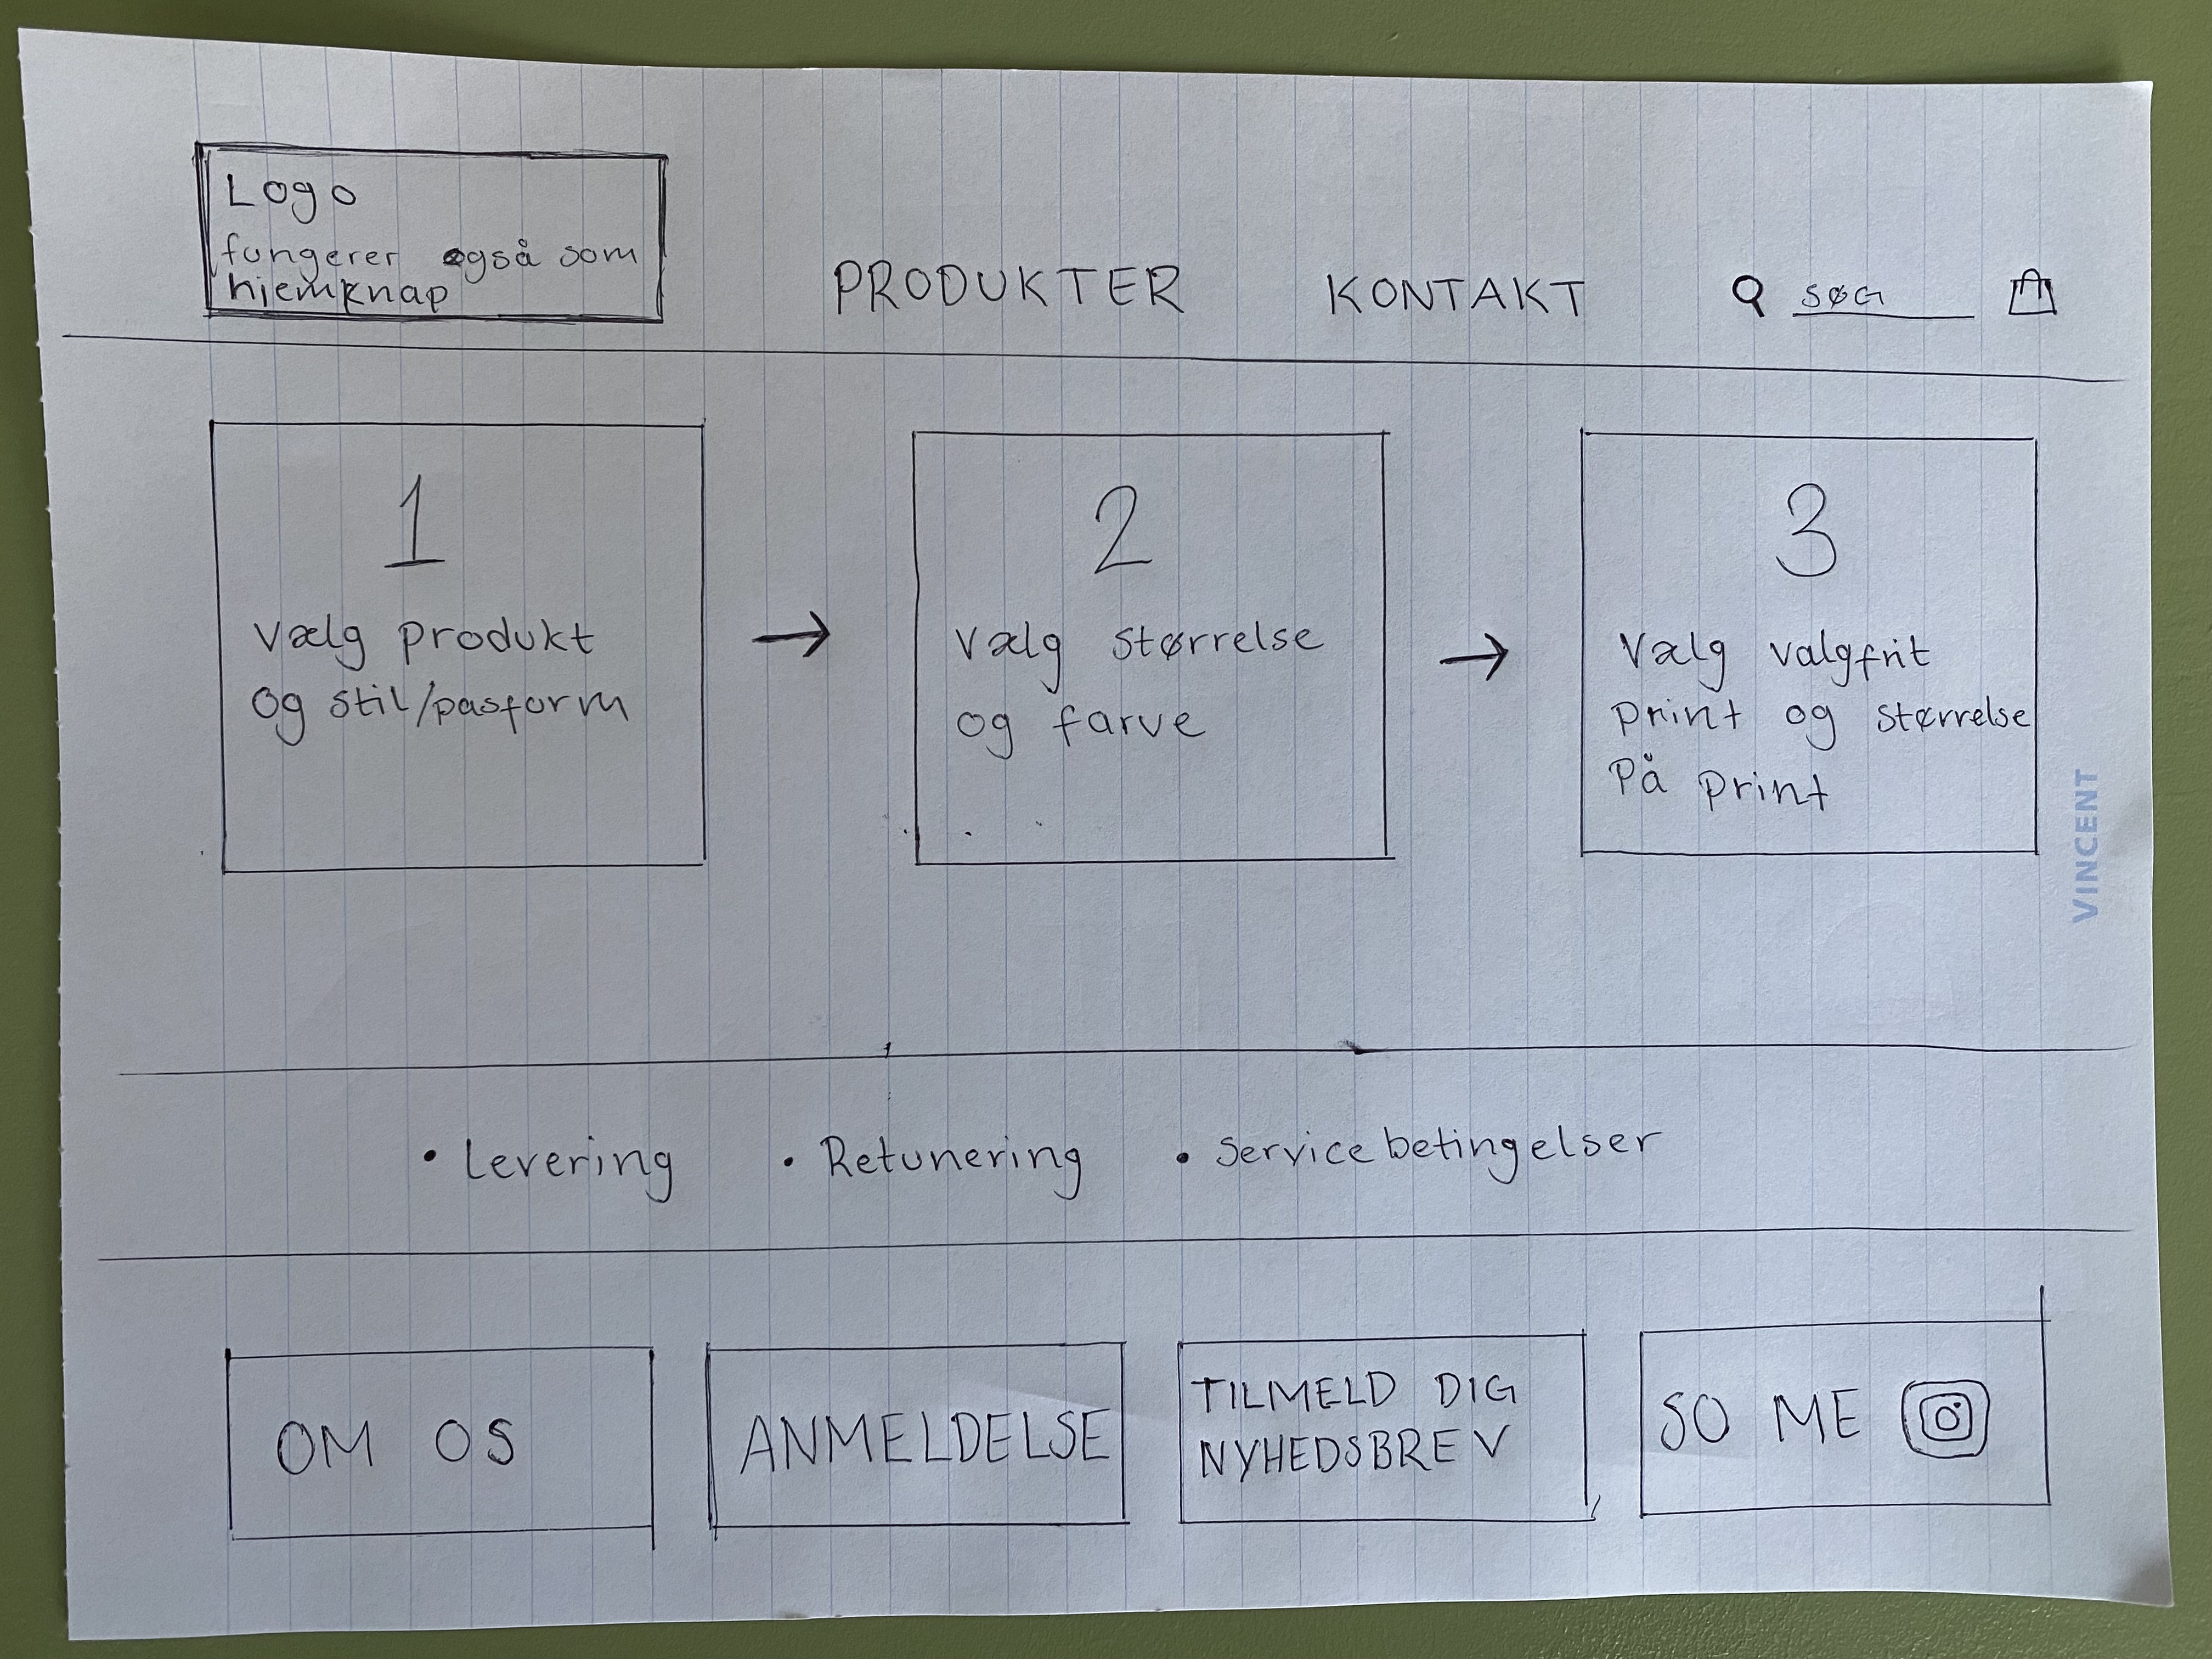 Logo
fungerer også som
hjemknap
PRODUKTER KONTAKT SØG
1
Vælg produkt
og stil/pasform
2
Vælg størrelse
og farve
3
Vælg valgfrit
print og størrelse
på print
VINCENT
• Levering • Retunering • Servicebetingelser
OM OS
ANMELDELSE
TILMELD DIG
NYHEDSBREV
SO ME